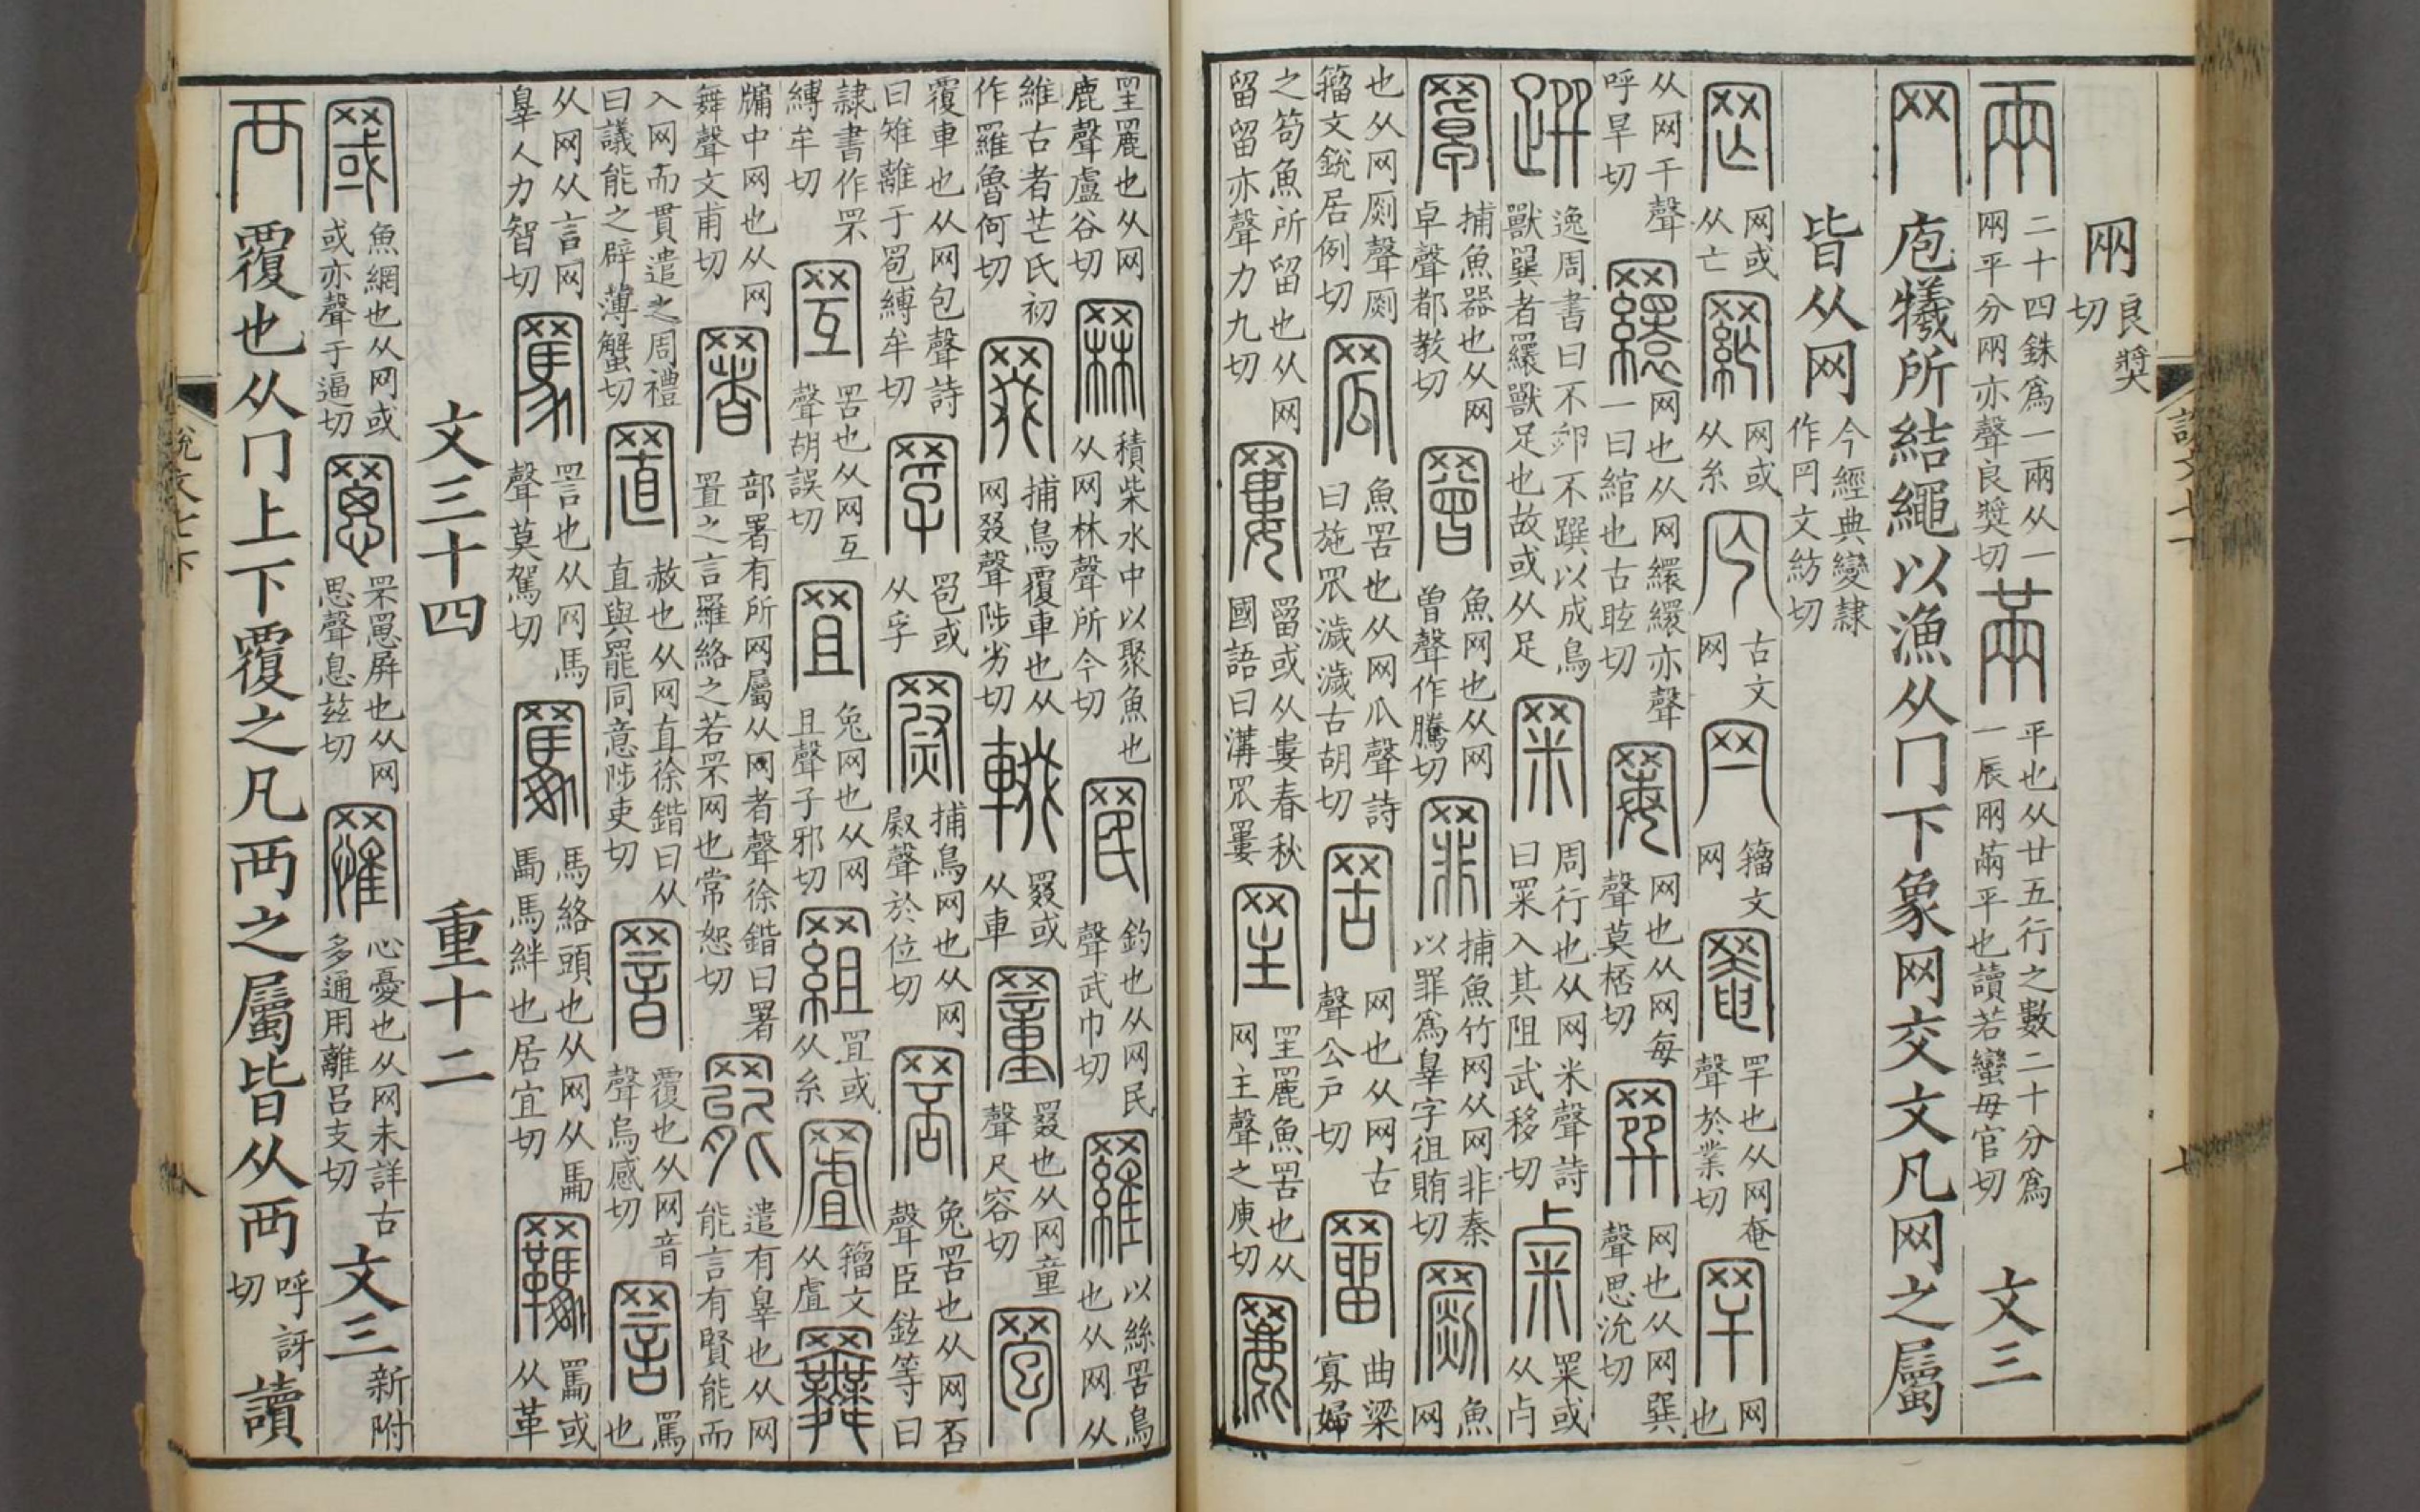 㒳良奬切
兩二十四銖爲一兩从一㒳平分㒳亦聲良奬切㒼平也从廿五行之數二十分爲一辰㒳㒼平也讀若蠻毋官切文三
网庖犧所結繩以漁从冂下象网交文凡网之屬
皆从网今經典變隸作𦉰文紡切
罔网或从亡網网或从糸𠔿古文网𦉪籒文网罨罕也从网奄聲於業切罕网也
从网干聲呼旱切繯网也从网繯繯亦聲一曰綰也古眩切𦋡网也从网每聲莫桮切网也从网巽聲思沇切
逸周書曰不卵不蹼以成鳥獸巽者繯獸足也故或从足冞周行也从网米聲詩曰冞入其阻武移切冞或从𣦵
罩捕魚器也从网卓聲都教切罾魚网也从网曾聲作騰切罪捕魚竹网从网非秦以罪爲辠字徂賄切罽魚网
也从网𠛱聲𠛱籒文銳居例切罛魚罟也从网瓜聲詩曰施罛濊濊古胡切罟网也从网古聲公戶切罶曲梁寡婦
之笱魚所留也从网留留亦聲力九切𦌁罶或从婁春秋國語曰溝罛𦌁罜罜麗魚罟也从网主聲之庾切罜
罜麗也从网鹿聲盧谷切罧積柴水中以聚魚也从网林聲所今切罠釣也从网民聲武巾切羅以絲罟鳥也从网从
維古者芒氏初作羅魯何切罬捕鳥覆車也从网叕聲陟劣切輟罬或从車罿罬也从网童聲尺容切雹
覆車也从网包聲詩曰雉離于䍖縛牟切罦䍖或从孚罻捕鳥网也从网𡰥聲於位切罘兔罟也从网否聲臣鉉等曰
隸書作罘縛牟切罟也从网互聲胡誤切罝兔网也从网且聲子邪切罝或从糸籒文从虘
牖中网也从网舞聲文甫切署部署有所网屬从网者聲徐鍇曰署置之言羅絡之若罘网也常恕切罷遣有辠也从网能言有賢能而
入网而貫遣之周禮曰議能之辟薄蟹切置赦也从网直徐鍇曰从直與罷同意陟吏切罯覆也从网音聲烏感切詈罵也
从网从言网辠人力智切罵詈也从网馬聲莫駕切馬絡頭也从网从馽馽馬絆也居宜切羈或从革
文三十四　重十二
罭魚網也从网或或亦聲于逼切罳罘罳屏也从网思聲息兹切罹心憂也从网未詳古多通用離呂支切文三新附
襾覆也从冂上下覆之凡襾之屬皆从襾呼訝切讀